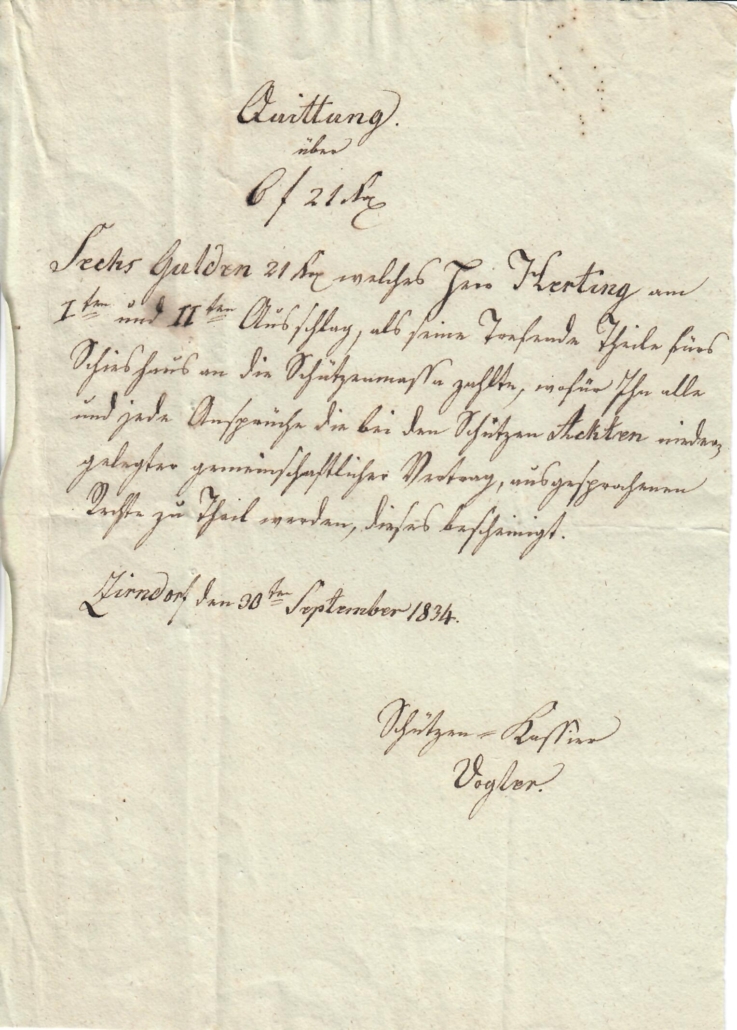 Quittung.
über
6 f 21 Kr
Sechs Gulden 21 Kr welches Herr Herting am
Iten und IIten Ausschlag, als seine Trefende Theile fürs
Schieshaus an die Schützenmassa zahlte, wofür Ihn alle
und jede Ansprüche die bei den Schützen Ackten nieder-
gelegter gemeinschaftlicher Vertrag, ausgesprochenen
Rechte zu Theil werden, dieses bescheinigt.
Zirndorf den 30ten September 1834.
Schützen-Kassier
Vogler.